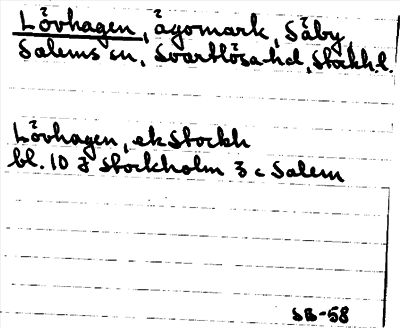 Lövhagen, ägomark, Säby,
Salems sn, Svartlösa hd, Stockh.l.
Lövhagen, ek Stockh
bl. 10 I Stockholm 3 c Salem
SB-58